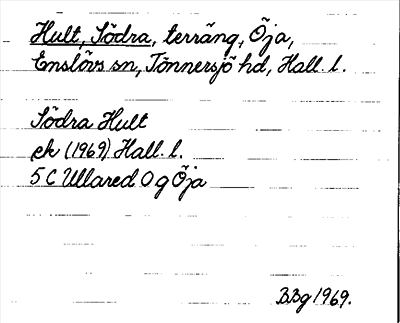 Hult, Södra, terräng, Öja,
Enslövs sn, Tönnersjö hd, Hall. l.
Södra Hult
ek (1969) Hall. l.
5 C Ullared 0 g Öja
BBg 1969.